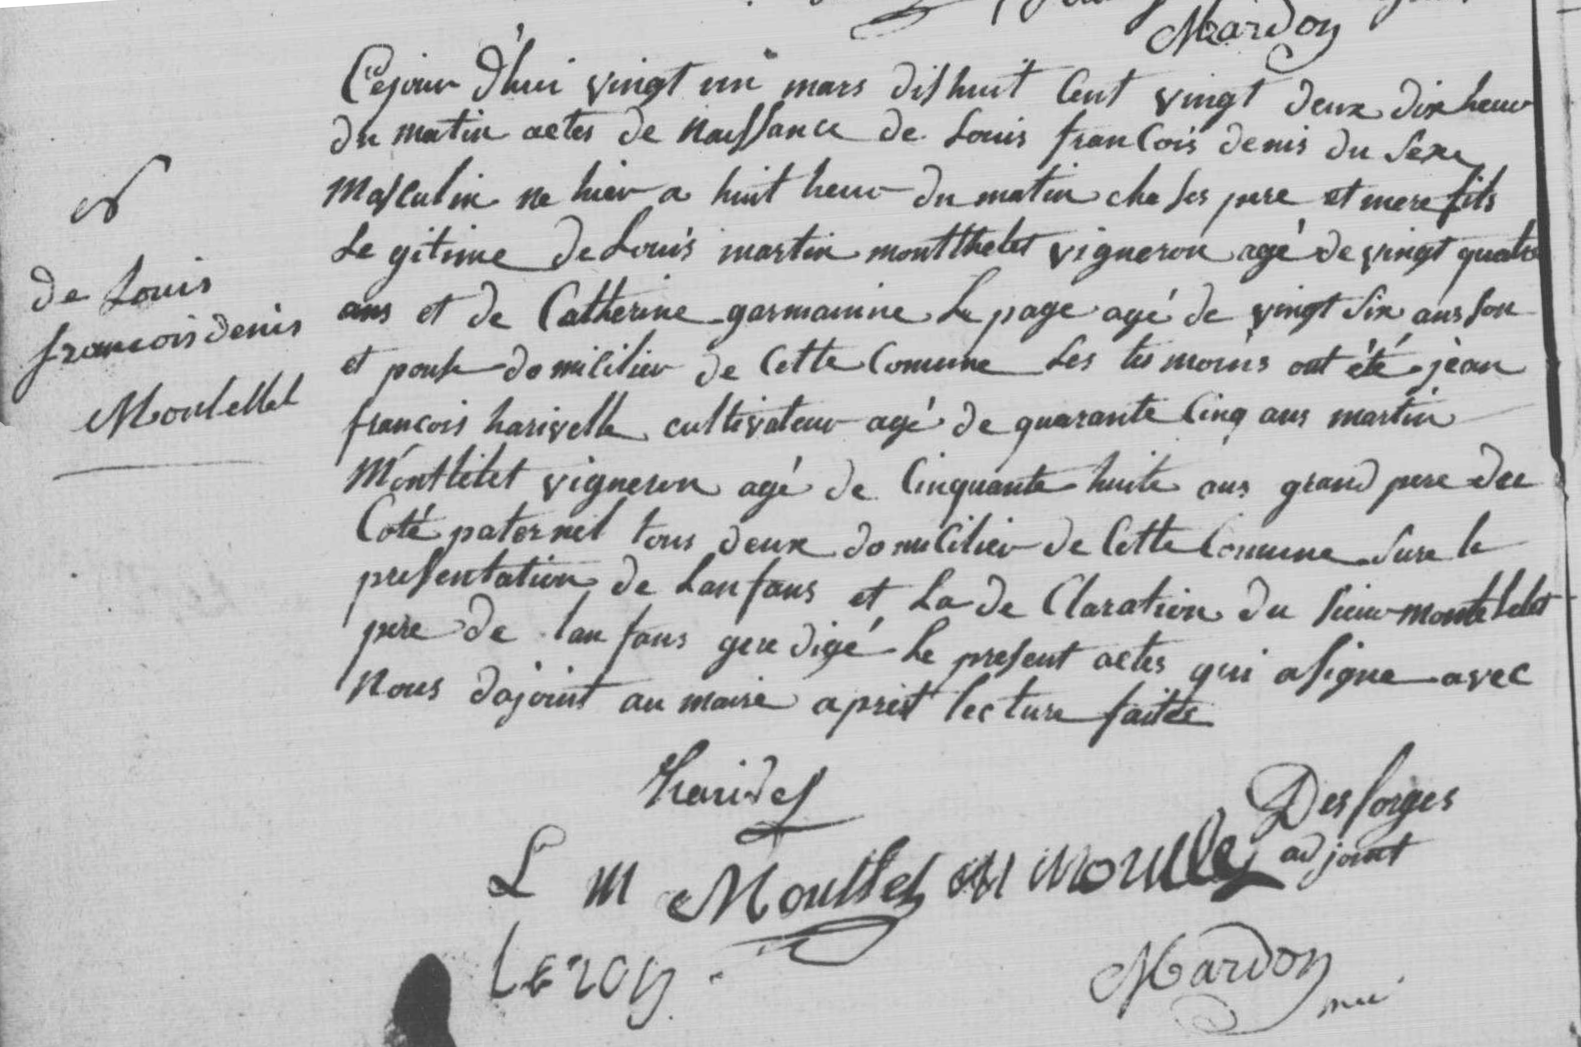 Mardon
Cejour d'hui vingt un mars dishuit Cent vingt deux dix heur
du matin actes de naissance de Louis francois denis du sexe
Masculin ne hier a huit heur du matin che ses pere et mere fils
Le gitime de Louis martin montthelet vigneron agé de vingt quatre
ans et de Catherine garmainine Le page agé de vingt six ans son
et pouse domicilier de Cette Comune Les tes moins ont été jèan
francois harivelle cultivateur agé de quarante Cinq ans martin
Montlelet vigneron agé de Cinquante huite ans grand pere dee
Coté paternel tous deux domicilier de Cette Comune sure le
presentation de Lanfans et La de Claration du sieur montelelet
pere de lanfans ge redigé Le present actes qui a signe avec
Nous dajoint au maire aprest lecture faites
6
de Louis
francois denis
Moutellet
Desforges
adjoint
L M Mouttet
Leroy
Mardon